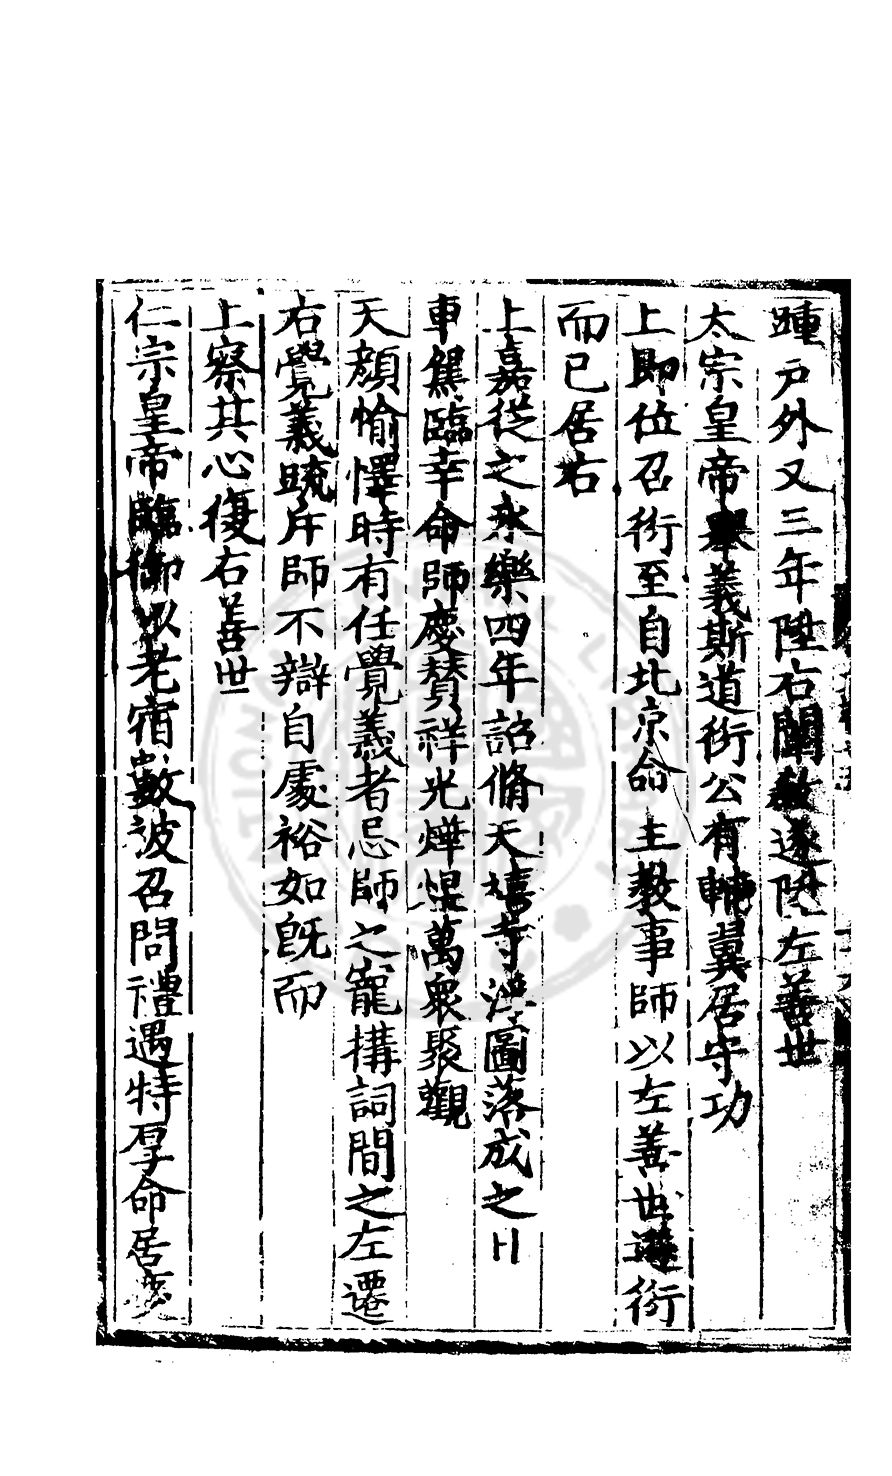 踵户外又三年陞右闡教遂陞左善世
太宗皇帝舉義斯道衍公有輔翼居守功
上即位召衍至自北京命主教事師以左善世遜衍
而已居右
上嘉從之永樂四年詔脩天禧寺浮圖落成之日
車駕臨幸命師慶賛祥光燁煜萬衆聚觀
天顔愉懌時有任覺義者忌師之寵搆詞間之左遷
右覺義䟽斥師不辯自處裕如旣而
上察其心復右善世
仁宗皇帝臨御以老宿數被召問禮遇特厚命居